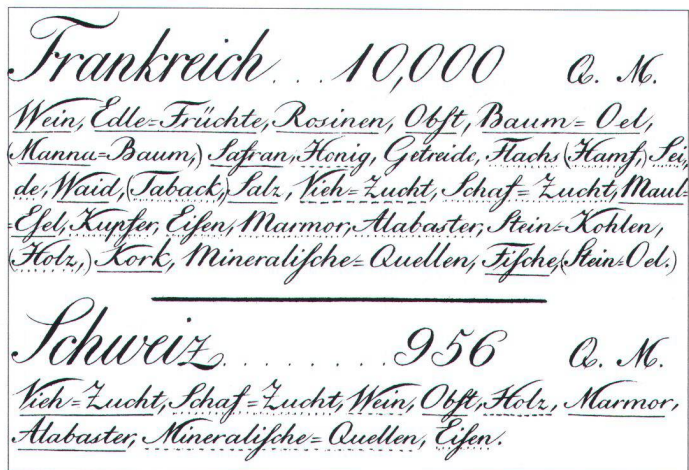 Frankreich . . . 10,000 Q. M.
Wein, Edle=Früchte, Rosinen, Obſt, Baum=Oel,
(Manna=Baum,) Safran, Honig, Getreide, Flachs (Hamf,) Sei,
de, Waid, (Taback,) Salz, Vieh=Zucht, Schaf=Zucht, Maul-
-Eſel, Kupfer, Eiſen, Marmor, Alabaster, Stein=Kohlen,
(Holz,) Kork, Mineraliſche=Quellen, Fiſche, (Stein=Oel.)
Schweiz . . . . . . . . . 956 Q. M.
Vieh=Zucht, Schaf=Zucht, Wein, Obſt, Holz, Marmor,
Alabaster, Mineraliſche=Quellen, Eiſen.